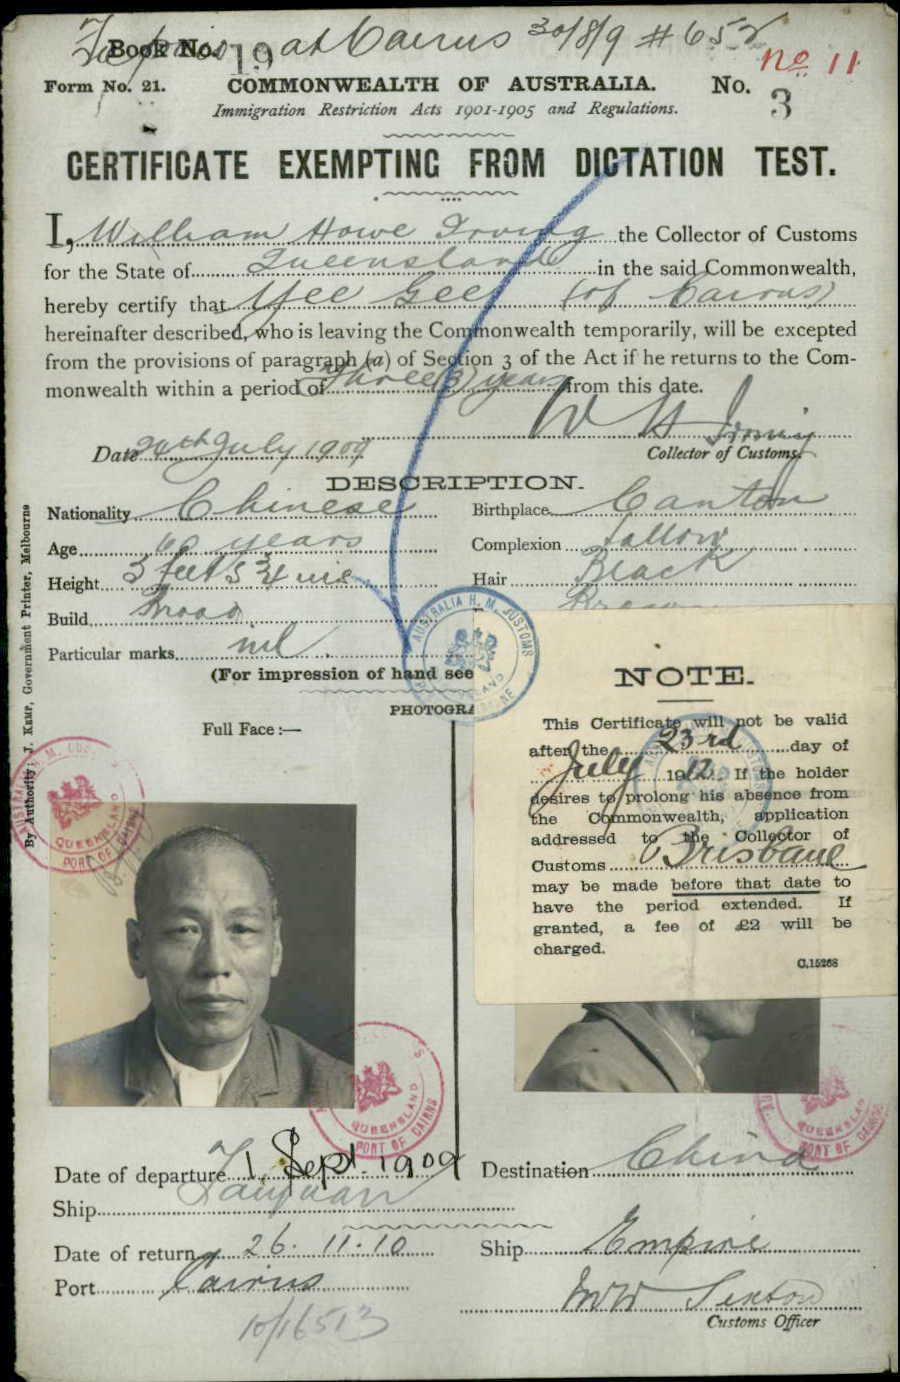 Book No. 19 at Cairns 30/8/9 #652
No 11
Form No. 21. COMMONWEALTH OF AUSTRALIA. No. 3
Immigration Restriction Acts 1901-1905 and Regulations.
CERTIFICATE EXEMPTING FROM DICTATION TEST.
I, William Howe Irving the Collector of Customs
for the State of Queensland in the said Commonwealth,
hereby certify that Yee Gee (of Cairns)
hereinafter described, who is leaving the Commonwealth temporarily, will be excepted
from the provisions of paragraph (a) of Section 3 of the Act if he returns to the Com-
monwealth within a period of Three (3) years from this date.
W H Irving
Date 24th July 1909 Collector of Customs.
DESCRIPTION.
Nationality Chinese Birthplace Canton
Age 60 years Complexion Sallow
Height 5 feet 5 3/4 ins Hair Black
Build Broad Brown
Particular marks nil.
(For impression of hand see
PHOTOGRA
Full Face:—
AUSTRALIA H. M. CUSTOMS
NOTE.
This Certificate will not be valid
after the 23rd day of
July 1912. If the holder
desires to prolong his absence from
the Commonwealth, application
addressed to the Collector of
Customs Brisbane
may be made before that date to
have the period extended. If
granted, a fee of £2 will be
charged.
C.15268
By Authority: J. Kemp, Government Printer, Melbourne
QUEENSLAND
PORT OF CAIRNS
QUEENSLAND
PORT OF CAIRNS
QUEENSLAND
PORT OF CAIRNS
Date of departure 1. Sept. 1909 Destination China
Ship Taiyuan
Date of return 26.11.10 Ship Empire
Port Cairns
Sexton
10/16513 Customs Officer